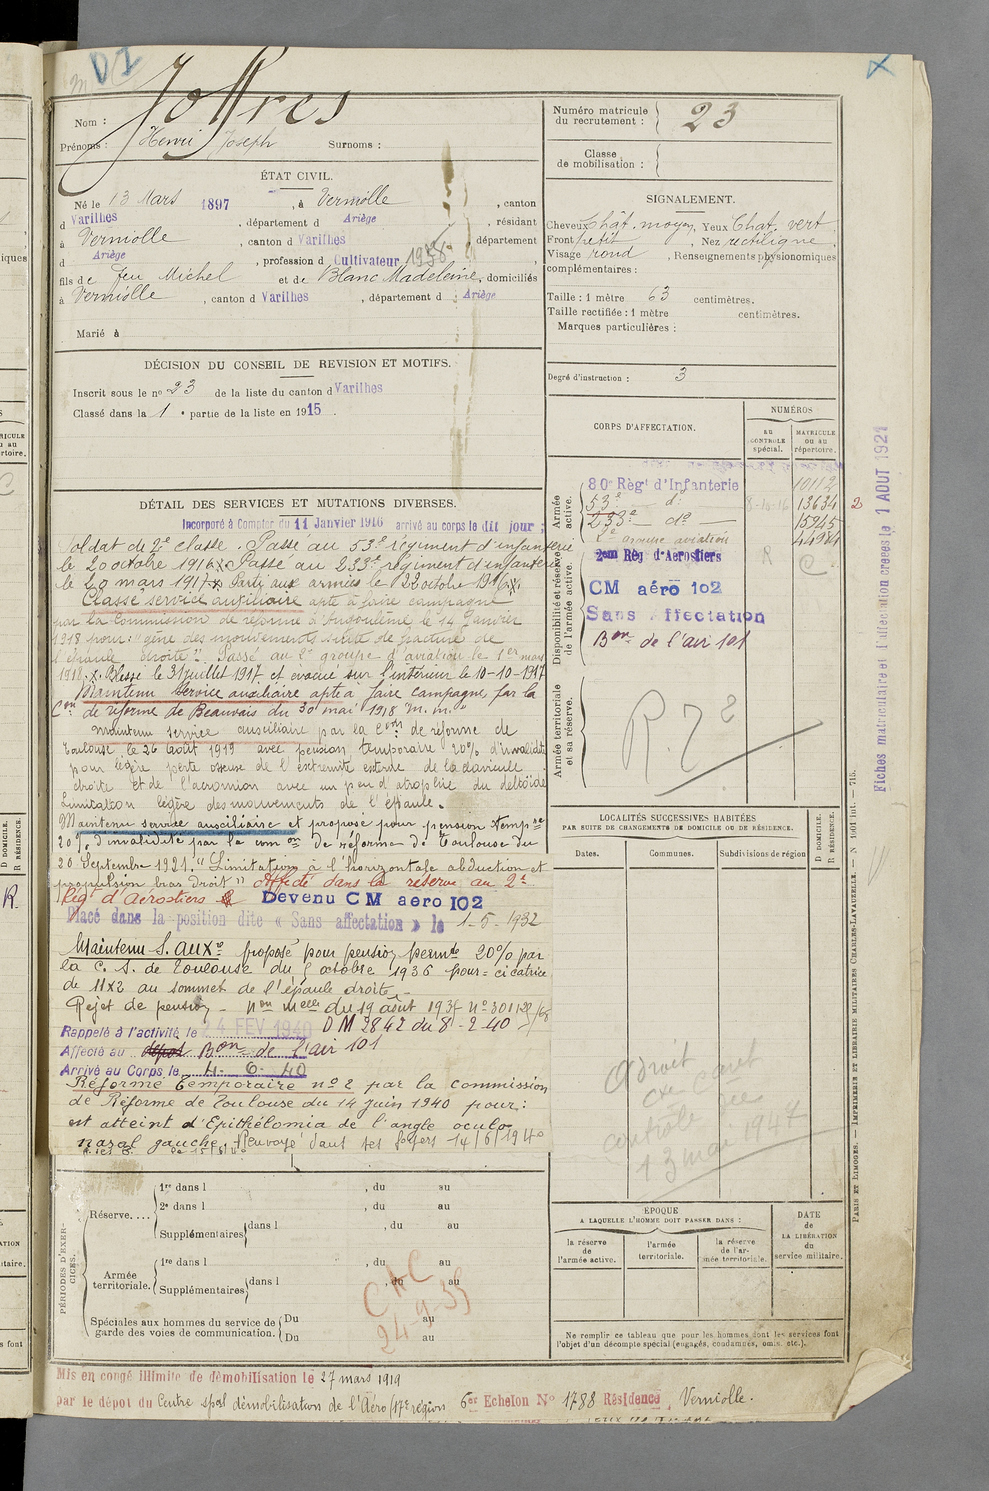 D2
Joffres
Nom :
Prénoms : Henri Joseph Surnoms :
ÉTAT CIVIL.
Né le 13 Mars 1897, à Verniolle, canton
d Varilhes, département d Ariège, résidant
à Verniolle, canton d Varilhes, département
d Ariège, profession d Cultivateur 1936
fils de feu Michel et de Blanc Madeleine, domiciliés
à Verniolle, canton d Varilhes, département d Ariège
Marié à
DÉCISION DU CONSEIL DE REVISION ET MOTIFS.
Inscrit sous le no 23 de la liste du canton d Varilhes
Classé dans la 1e partie de la liste en 1915.
DÉTAIL DES SERVICES ET MUTATIONS DIVERSES.
Incorporé à Compter du 11 Janvier 1916 arrivé au corps le dit jour ;
Soldat de 2e classe. Passé au 53e régiment d'infanterie
le 20 octobre 1916. x Passé au 233e régiment d'infanterie
le 20 mars 1917. x Parti aux armées le 22 octobre 1916. x.
Classé service auxiliaire apte à faire campagne
par la Commission de réforme d'Angoulême le 14 Janvier
1918 pour : "gêne des mouvements suite de fracture de
l'épaule droite". Passé au 2e groupe d'aviation le 1er mars
1918. x. Blessé le 31 juillet 1917 et évacué sur l'intérieur le 10-10-1917
Maintenu service auxiliaire apte à faire campagne par la
Con de réforme de Beauvais du 30 mai 1918 m. m."
maintenu service auxiliaire par la Con de réforme de
Toulouse le 26 août 1919 avec pension temporaire 20% d'invalidité
pour légère perte osseuse de l'extrémité externe de la clavicule
droite et de l'acromion avec un peu d'atrophie du deltoïde
Limitation légère des mouvements de l'épaule.
Maintenu service auxiliaire et proposé pour pension tempre
20% d'invalidité par la comon de réforme de Toulouse du
26 Septembre 1921. "Limitation à l'horizontale abduction et
propulsion bras droit" Affecté dans la réserve au 2e
Rég. d'Aérostiers Devenu CM aero 102
Placé dans la position dite « Sans affectation » le 1-5-1932
Maintenu S. auxe proposé pour pension permte 20% par
la C. S. de Toulouse du octobre 1936 pour = cicatrice
de 11x2 au sommet de l'épaule droite.
Rejet de pension - non melle du 19 août 1937 no 301129/68
Rappelé à l'activité le 24 FEV 1940 DM 2842 du 8-2-40
Affecté au dépôt Bon de l'air 101
Arrivé au Corps le 4-6-40
Réformé Temporaire no 2 par la commission
de Réforme de Toulouse du 14 juin 1940 pour :
est atteint d'Epithélioma de l'angle oculo
nasal gauche. Renvoyé dans ses foyers 14/6/1940
PÉRIODES D'EXERCICES.
Réserve....
1re dans l , du au
2e dans l , du au
Supplémentaires dans l , du au
Armée territoriale.
1re dans l , du au
Supplémentaires dans l , du au
Spéciales aux hommes du service de garde des voies de communication.
Du au
Du au
CAC
24-9-35
Mis en congé illimité de démobilisation le 27 mars 1919
par le dépôt du Centre spal démobilisation de l'Aéro (17e région 6er Echelon No 1788 Résidence, Verniolle.
Numéro matricule
du recrutement : 23
Classe
de mobilisation :
SIGNALEMENT.
Cheveux chât. moyen, Yeux Chat. vert
Front petit, Nez rectiligne
Visage rond, Renseignements physionomiques
complémentaires :
Taille : 1 mètre 63 centimètres.
Taille rectifiée : 1 mètre centimètres.
Marques particulières :
Degré d'instruction : 3
CORPS D'AFFECTATION.
NUMÉROS
au
CONTRÔLE
spécial.
MATRICULE
ou au
répertoire.
Armée active.
80e Régt d'Infanterie 10112
53e do 8-10-16 13634
233e do 15245
2e groupe aviation
Disponibilité et réserve de l'armée active.
2eme Rég d'Aerostiers
CM aéro 102
Sans affectation
Bon de l'air 101
Armée territoriale et sa réserve.
R.T 2
LOCALITÉS SUCCESSIVES HABITÉES
PAR SUITE DE CHANGEMENTS DE DOMICILE OU DE RÉSIDENCE.
Dates.
Communes.
Subdivisions de région
D DOMICILE.
R RÉSIDENCE.
13 mai 1947
ÉPOQUE
A LAQUELLE L'HOMME DOIT PASSER DANS :
la réserve
de
l'armée active.
l'armée
territoriale.
la réserve
de l'ar-
mée territoriale.
DATE
de
LA LIBÉRATION
du
service militaire.
Ne remplir ce tableau que pour les hommes dont les services font
l'objet d'un décompte spécial (engagés, condamnés, omis, etc.).
Fiches matriculaire et d'affectation créées le 1 AOUT 1921
PARIS ET LIMOGES. — IMPRIMERIE ET LIBRAIRIE MILITAIRES CHARLES-LAVAUZELLE.